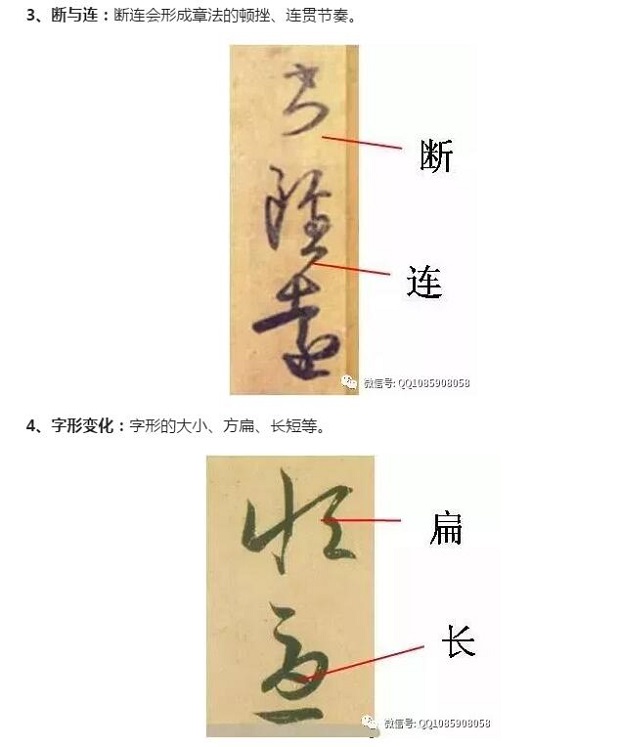 3、断与连：断连会形成章法的顿挫、连贯节奏。
断
连
微信号: QQ1085908058
4、字形变化：字形的大小、方扁、长短等。
扁
长
微信号: QQ1085908058